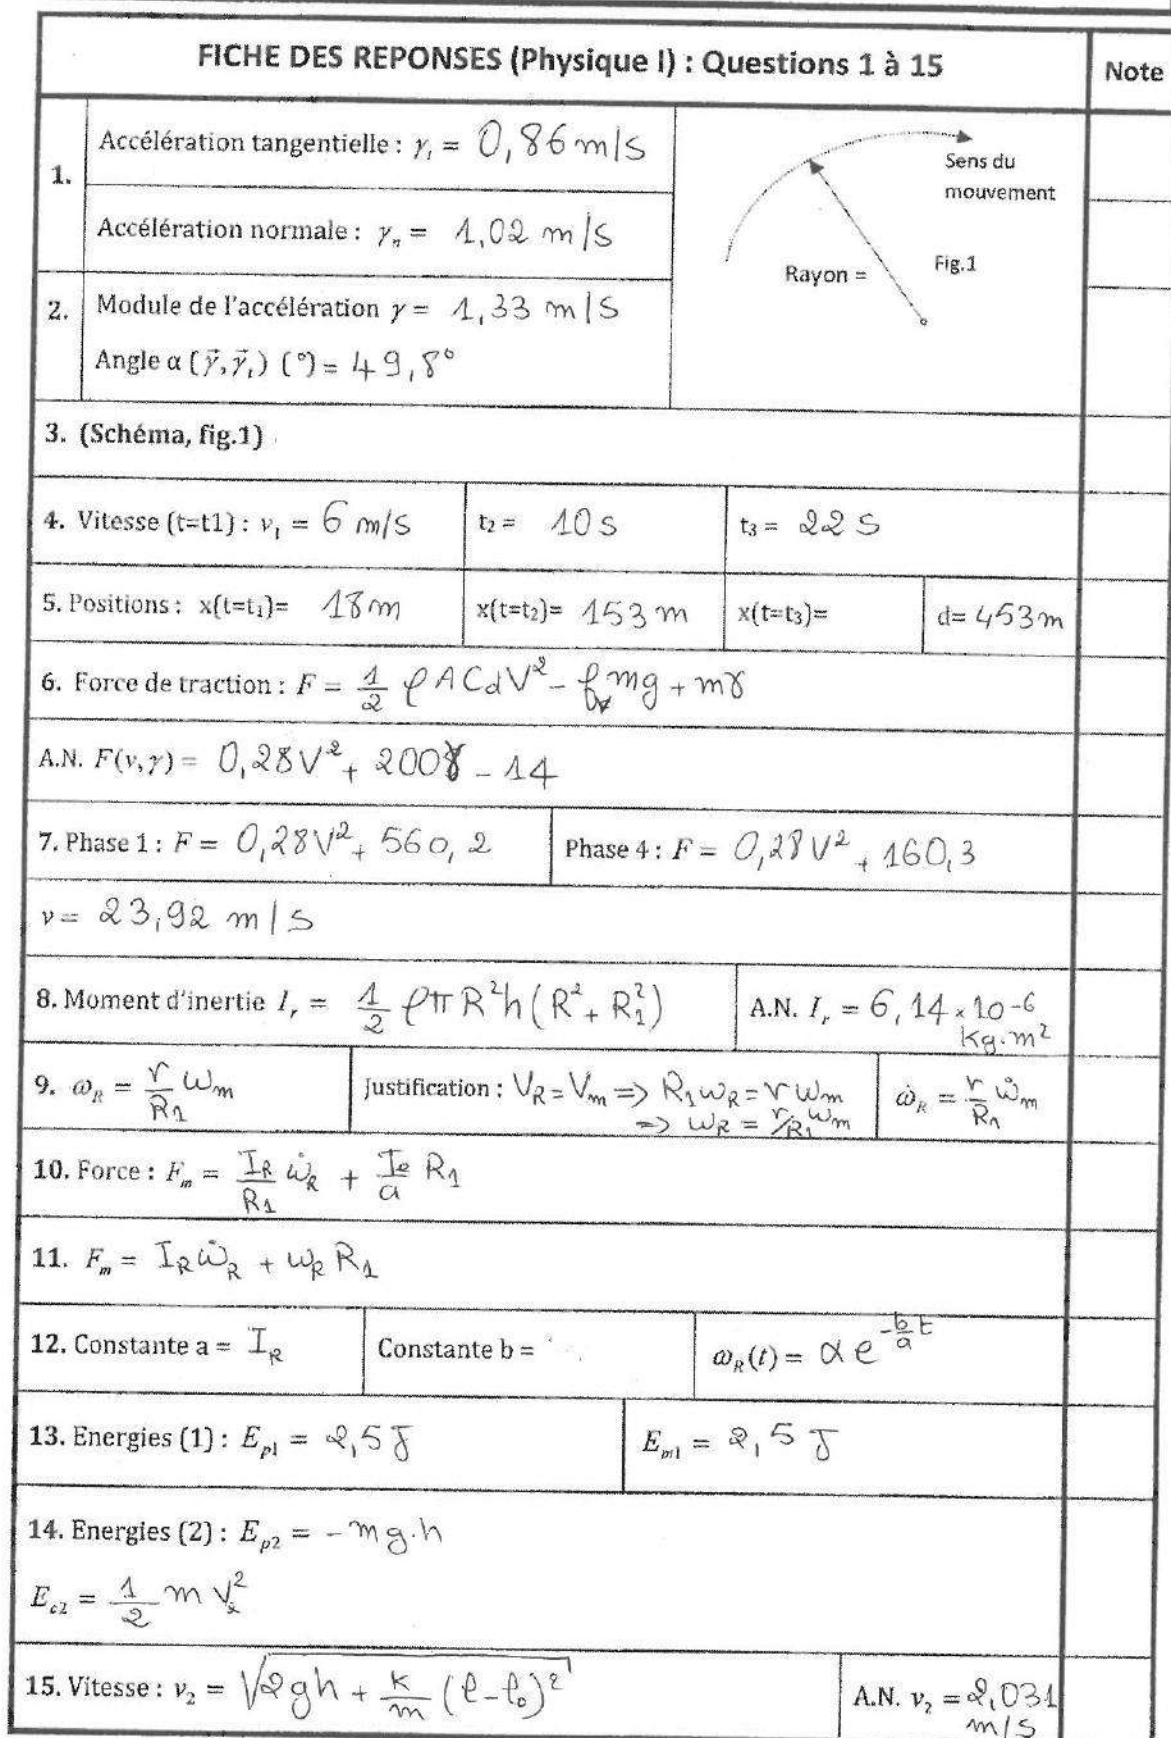 FICHE DES REPONSES (Physique I) : Questions 1 à 15
Note
1.
Accélération tangentielle : γₜ = 0,86 m/s
Accélération normale : γₙ = 1,02 m/s
Sens du
mouvement
Rayon =
Fig.1
2.
Module de l'accélération γ = 1,33 m/s
Angle α (γ⃗, γ⃗ₜ) (°) = 49,8°
3. (Schéma, fig.1)
4. Vitesse (t=t1) : v₁ = 6 m/s
t₂ = 10 s
t₃ = 22 s
5. Positions : x(t=t₁)= 18m
x(t=t₂)= 153 m
x(t=t₃)=
d= 453m
6. Force de traction : F = 1/2 ρACdV² - fᵥmg + mγ
A.N. F(v,γ) = 0,28V² + 200γ - 14
7. Phase 1 : F = 0,28V² + 560,2
Phase 4 : F = 0,28V² + 160,3
v = 23,92 m/s
8. Moment d'inertie Iᵣ = 1/2 ρπR²h(R² + R₁²)
A.N. Iᵣ = 6,14 × 10⁻⁶
kg.m²
9. ω_R = r/R₁ ω_m
Justification : V_R = V_m => R₁ω_R = rω_m
=> ω_R = r/R₁ ω_m
ω̇_R = r/R₁ ω̇_m
10. Force : F_m = I_R/R₁ ω̇_R + I_e/a R₁
11. F_m = I_R ω̇_R + ω_R R₁
12. Constante a = I_R
Constante b =
ω_R(t) = α e^(-b/a t)
13. Energies (1) : E_p1 = 2,5 J
E_m1 = 2,5 J
14. Energies (2) : E_p2 = - mg.h
E_c2 = 1/2 m V₂²
15. Vitesse : v₂ = √(2gh + k/m (l-l₀)²)
A.N. v₂ = 2,031
m/s